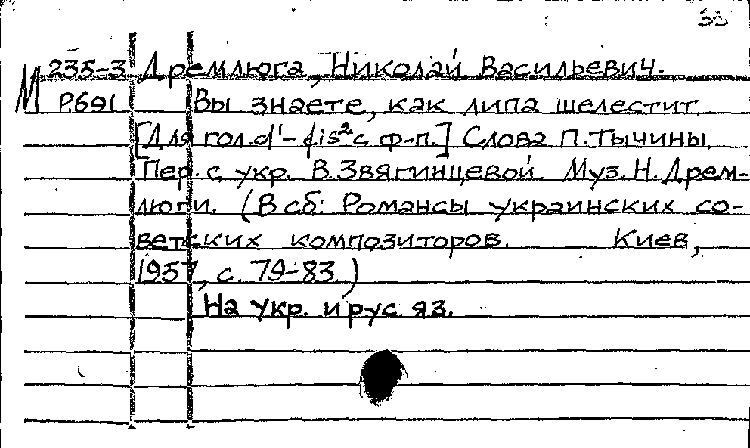 М 235-3 Дремлюга, Николай Васильевич.
Р691 Вы знаете, как липа шелестит
[Для гол. d¹-fis² с ф-п.] Слова П. Тычины.
Пер. с укр. В. Звягинцевой. Муз. Н. Дрем-
люги. (В сб: Романсы украинских со-
ветских композиторов. Киев,
1957, с. 79-83)
На укр. и рус яз.